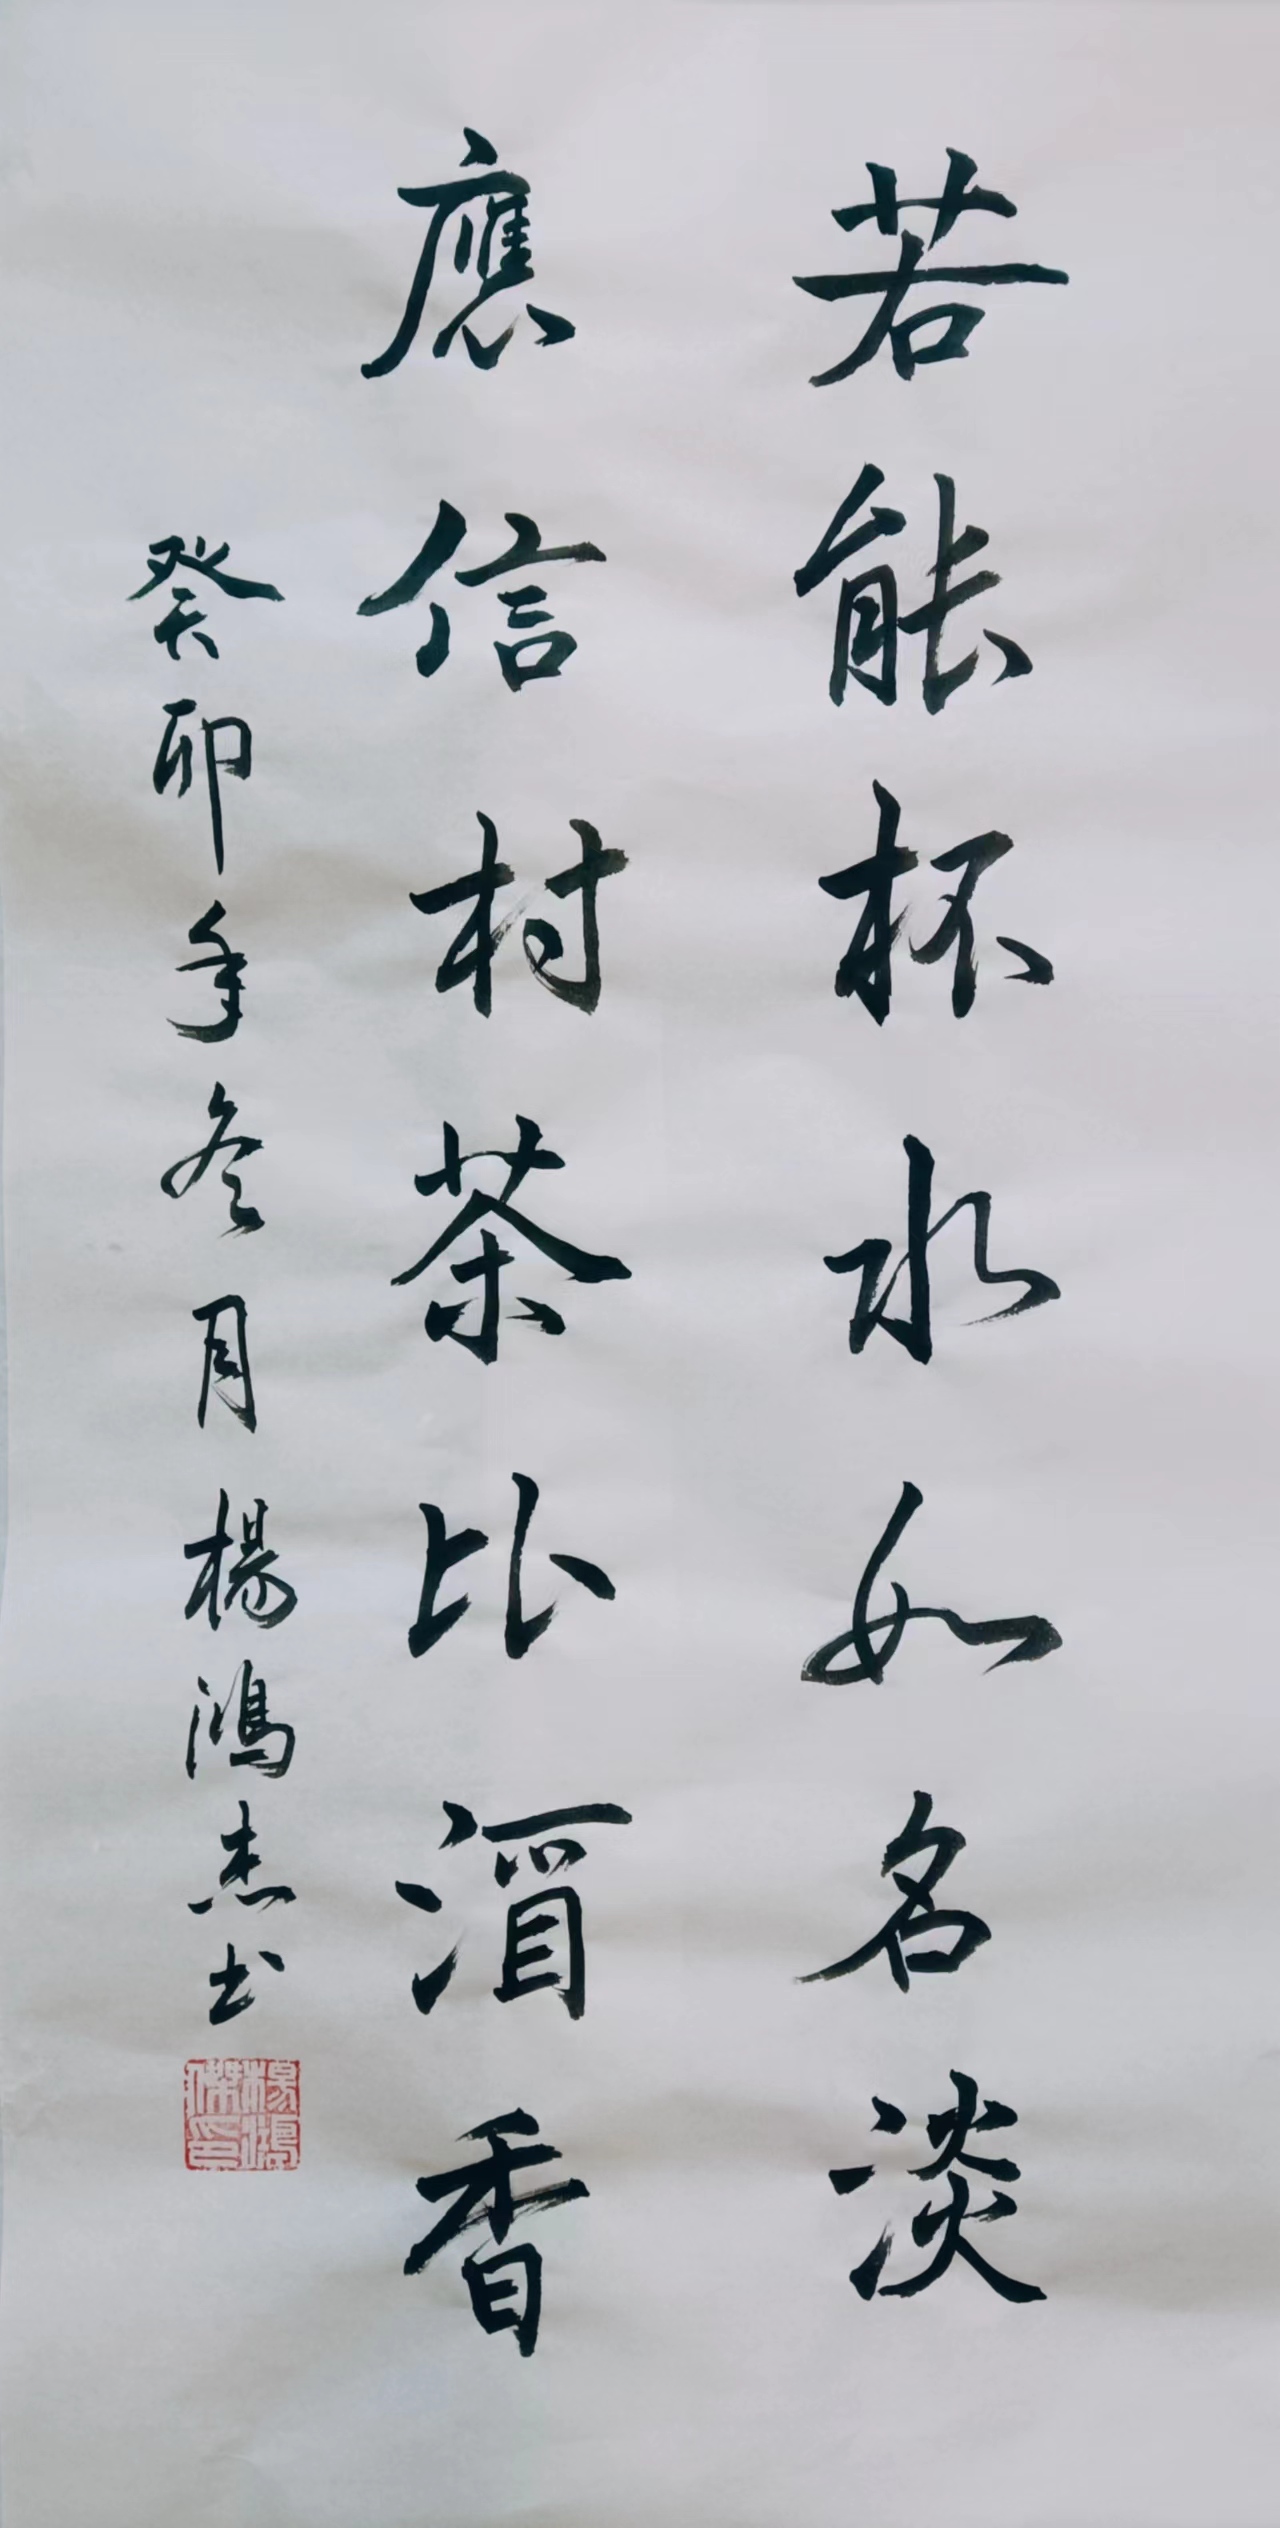 若能杯水如名淡
應信村茶比酒香
癸卯年冬月楊鴻杰书
楊鴻
傑印